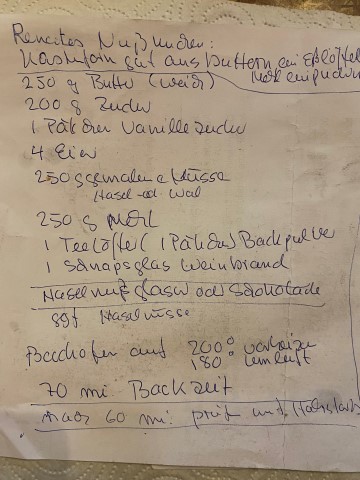 Nußkuchen:
Kastenform gut aus buttern, ein Eßlöffel
Mehl einpudern
250 g Butter (weich)
200 g Zucker
1 Päkchen Vanillezucker
4 Eier
250 g gemalene Nüsse
Hasel od. Wal
250 g Mehl
1 Teelöffel (1 Päkchen) Backpulver
1 Schnapsglas Weinbrand
Haselnußglasur oder Schokolade
Haselnüsse
Backofen auf 200° vorheizen
180° umluft
70 mi. Backzeit
Nach 60 mi.